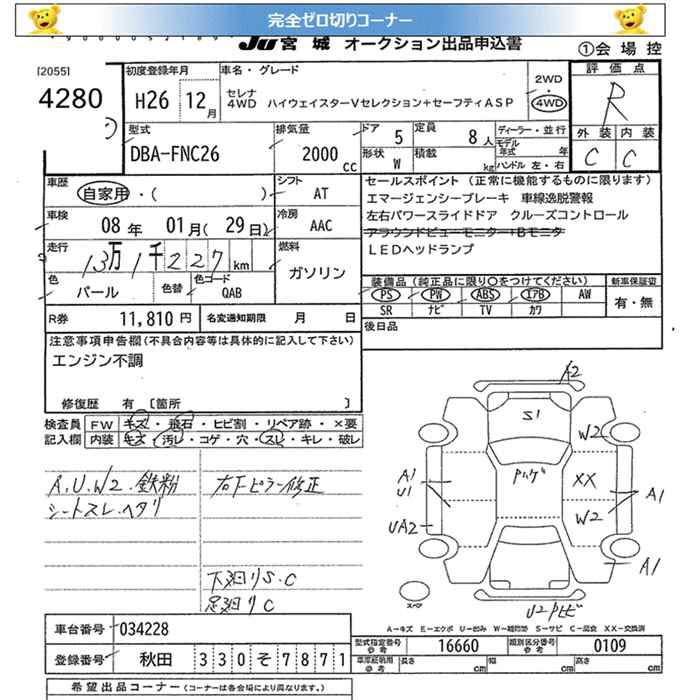 完全ゼロ切りコーナー
JU 宮城 オークション出品申込書
①会場控
[2055]
4280
初度登録年月
H26 12月
車名・グレード
セレナ
4WD ハイウェイスターVセレクション+セーフティASP
2WD
・
4WD
評価点
R
外装 内装
C C
型式
DBA-FNC26
排気量
2000 CC
ドア 5
定員 8人
形状 W
積載 kg
ディーラー・並行
モデル年式 年
ハンドル 左・右
車歴
自家用・( )
シフト
AT
車検
08年 01月(29日)
冷房
AAC
走行
13万1千227km
燃料
ガソリン
色
パール
色替
色コード
QAB
セールスポイント (正常に機能するものに限ります)
エマージェンシーブレーキ 車線逸脱警報
左右パワースライドドア クルーズコントロール
アラウンドビューモニター+Bモニタ
LEDヘッドランプ
装備品(純正品に限り○をつけてください)
PS PW ABS エアB AW
SR ナビ TV カワ
新車保証書
有・無
R券 11,810円
名変通知期限 月 日
後日品
注意事項申告欄(不具合内容等は具体的に記入して下さい)
エンジン不調
修復歴 有 [箇所 ]
検査員記入欄
FW キズ・飛石・ヒビ割・リペア跡・×要
内装 キズ・汚レ・コゲ・穴・スレ・キレ・破レ
A.U.W2.鉄粉
シートスレ.ヘタリ
右下ピラー修正
下廻りS.C
足廻りC
A2
S1
W2
Pハゲ
XX
A1
U1
W2
A1
UA2
A1
U2Pヒビ
スペア
A-キズ E-エクボ U-凹み W-補修跡 S-サビ C-腐食 XX-交換済
車台番号 034228
登録番号 秋田 330そ7871
型式指定番号 参考 16660
類別区分番号 参考 0109
車庫証明用 参考
長さ cm
幅 cm
高さ cm
希望出品コーナー(コーナーは各会場により異なります。)